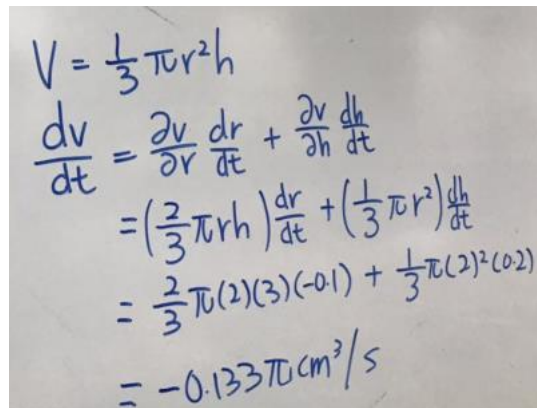 V = 1/3 πr²h
dv/dt = ∂v/∂r dr/dt + ∂v/∂h dh/dt
= (2/3 πrh) dr/dt + (1/3 πr²) dh/dt
= 2/3 π(2)(3)(-0.1) + 1/3 π(2)²(0.2)
= -0.133π cm³/s